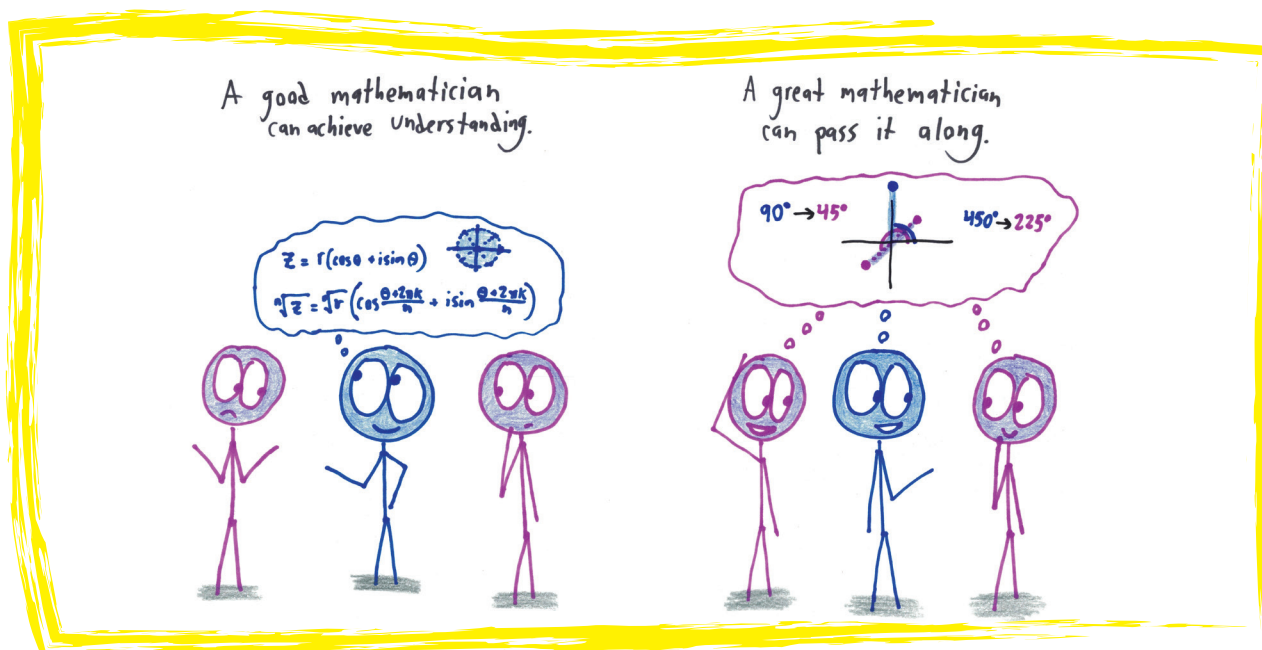 A good mathematician
can achieve understanding.
z = r(cosθ + isinθ)
ⁿ√z = ⁿ√r (cos θ+2πk/n + isin θ+2πk/n)
A great mathematician
can pass it along.
90° → 45°
450° → 225°